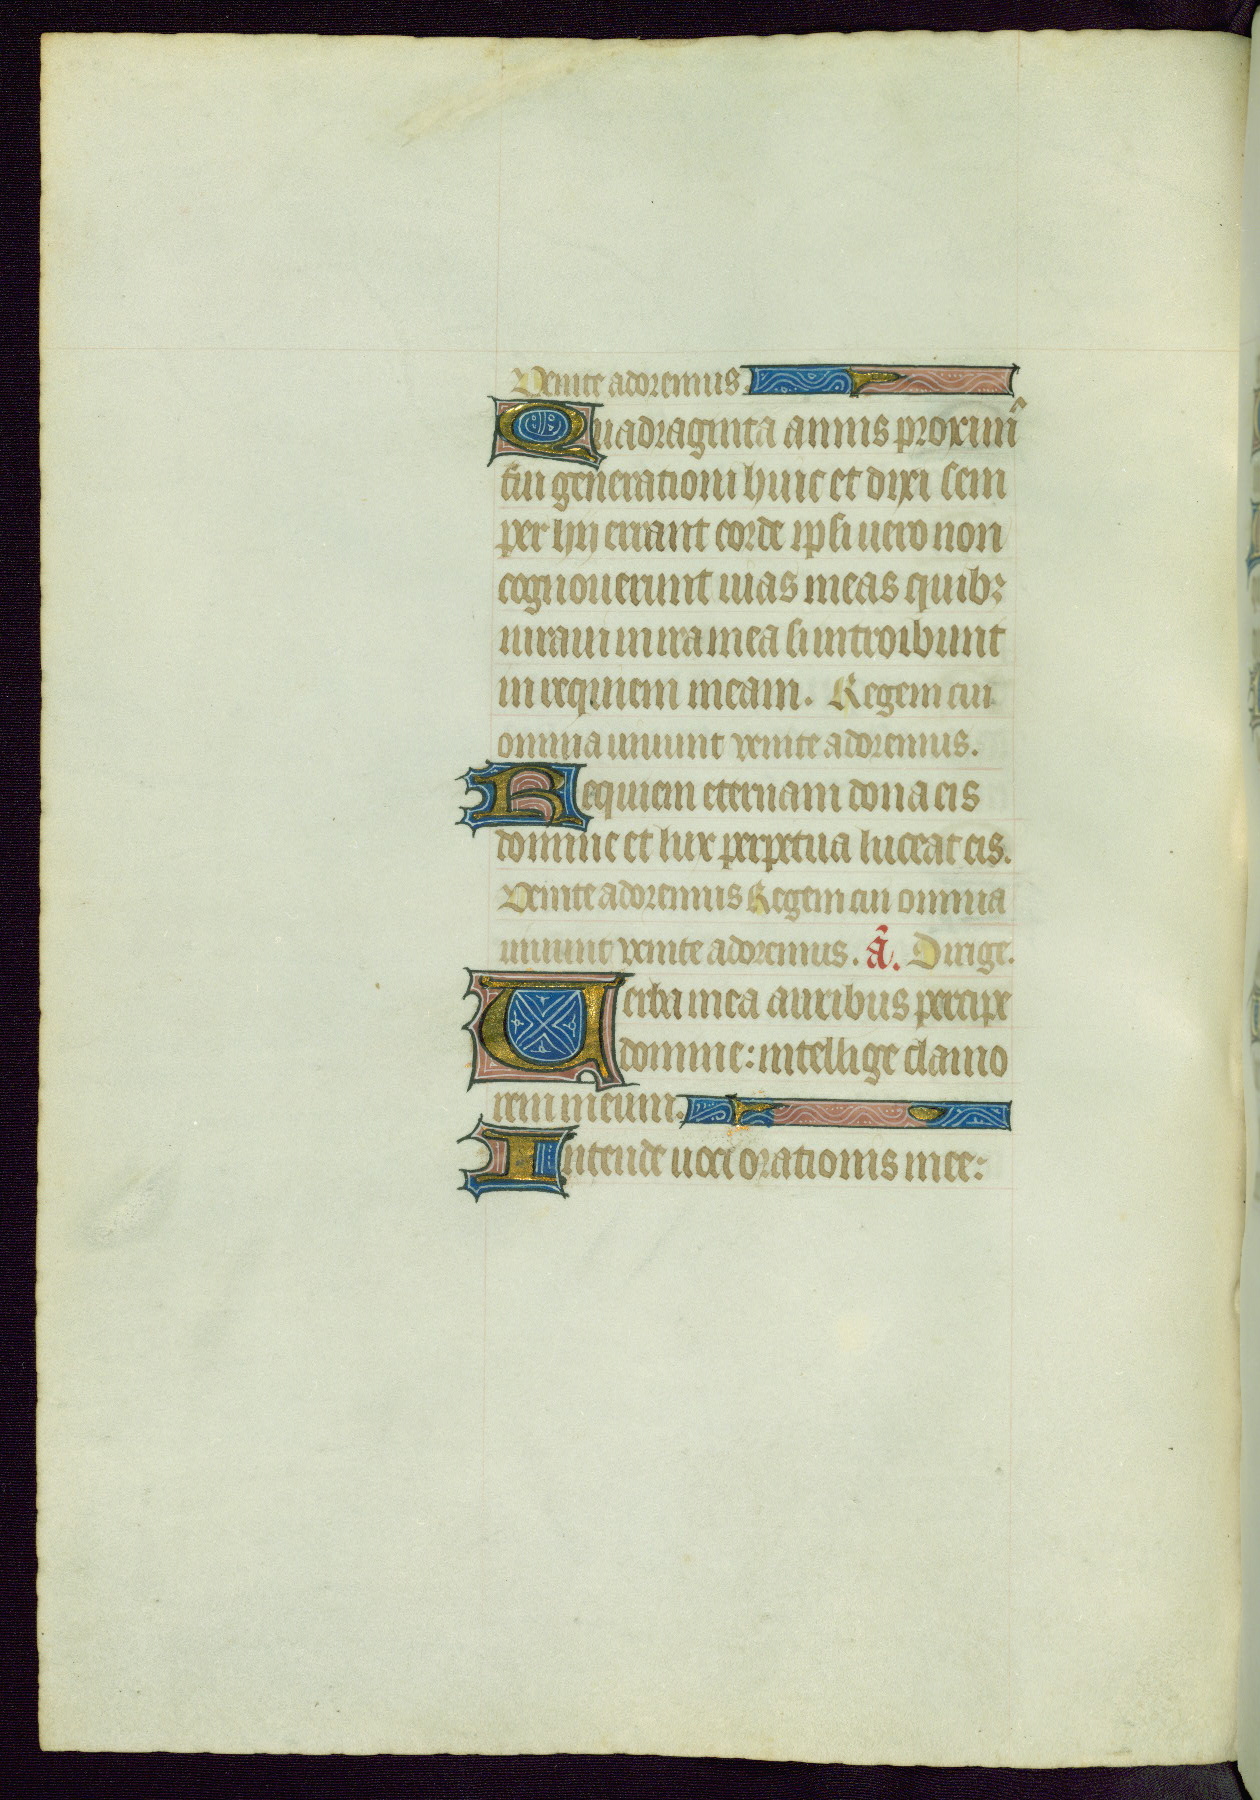 Venite adoremus.
Quadraginta annis proximꝰ
fui generationi huic et dixi sem
per hij errant corde ipsi uero non
cognouerunt uias meas quibꝫ
iuraui in ira mea si introibunt
in requiem meam. Regem cui
omnia uiuunt venite adoremus.
Requiem eternam dona eis
domine et lux perpetua luceat eis.
Venite adoremus Regem cui omnia
uiuunt venite adoremus. ã. Dirige.
Uerba mea auribus percipe
domine: intellige clamo
rem meum.
Intende uoci orationis mee: